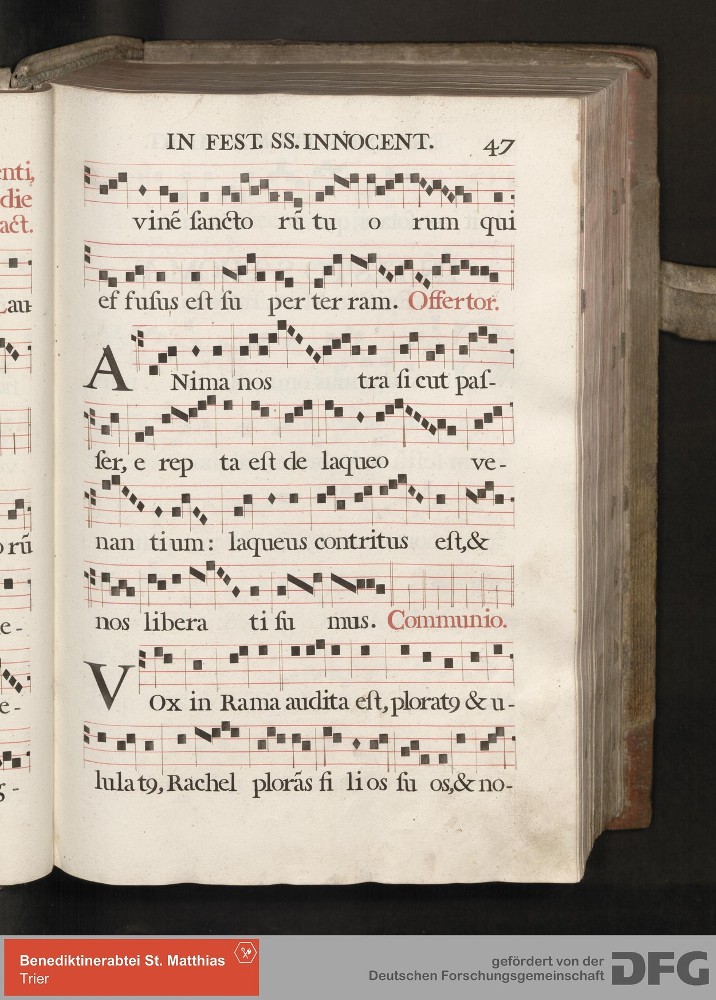 IN FEST. SS. INNOCENT. 47
vinẽ ſancto rũ tu o rum qui
ef fuſus eſt ſu per ter ram. Offertor.
ANima nos tra ſi cut paſ-
ſer, e rep ta eſt de laqueo ve-
nan tium: laqueus contritus eſt, &
nos libera ti ſu mus. Communio.
VOx in Rama audita eſt, plorat9 & u-
lulat9, Rachel plorãs fi lios ſu os, & no-
enti,
die
act.
Lau-
orũ
e-
e-
g-
Benediktinerabtei St. Matthias
Trier
gefördert von der
Deutschen Forschungsgemeinschaft
DFG